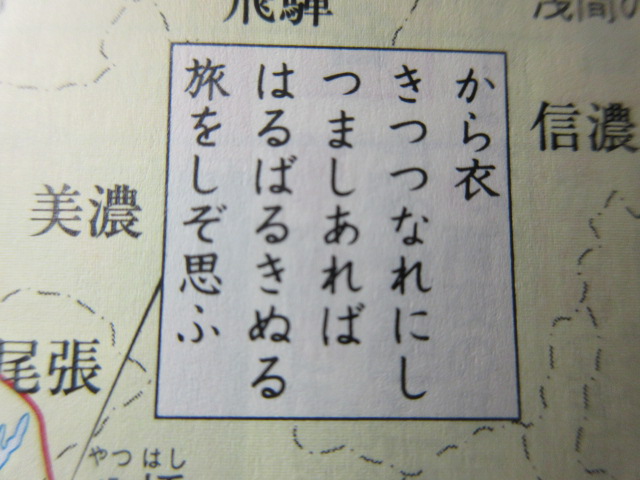 飛騨
信濃
から衣
きつつなれにし
つましあれば
はるばるきぬる
旅をしぞ思ふ
美濃
尾張
やつはし